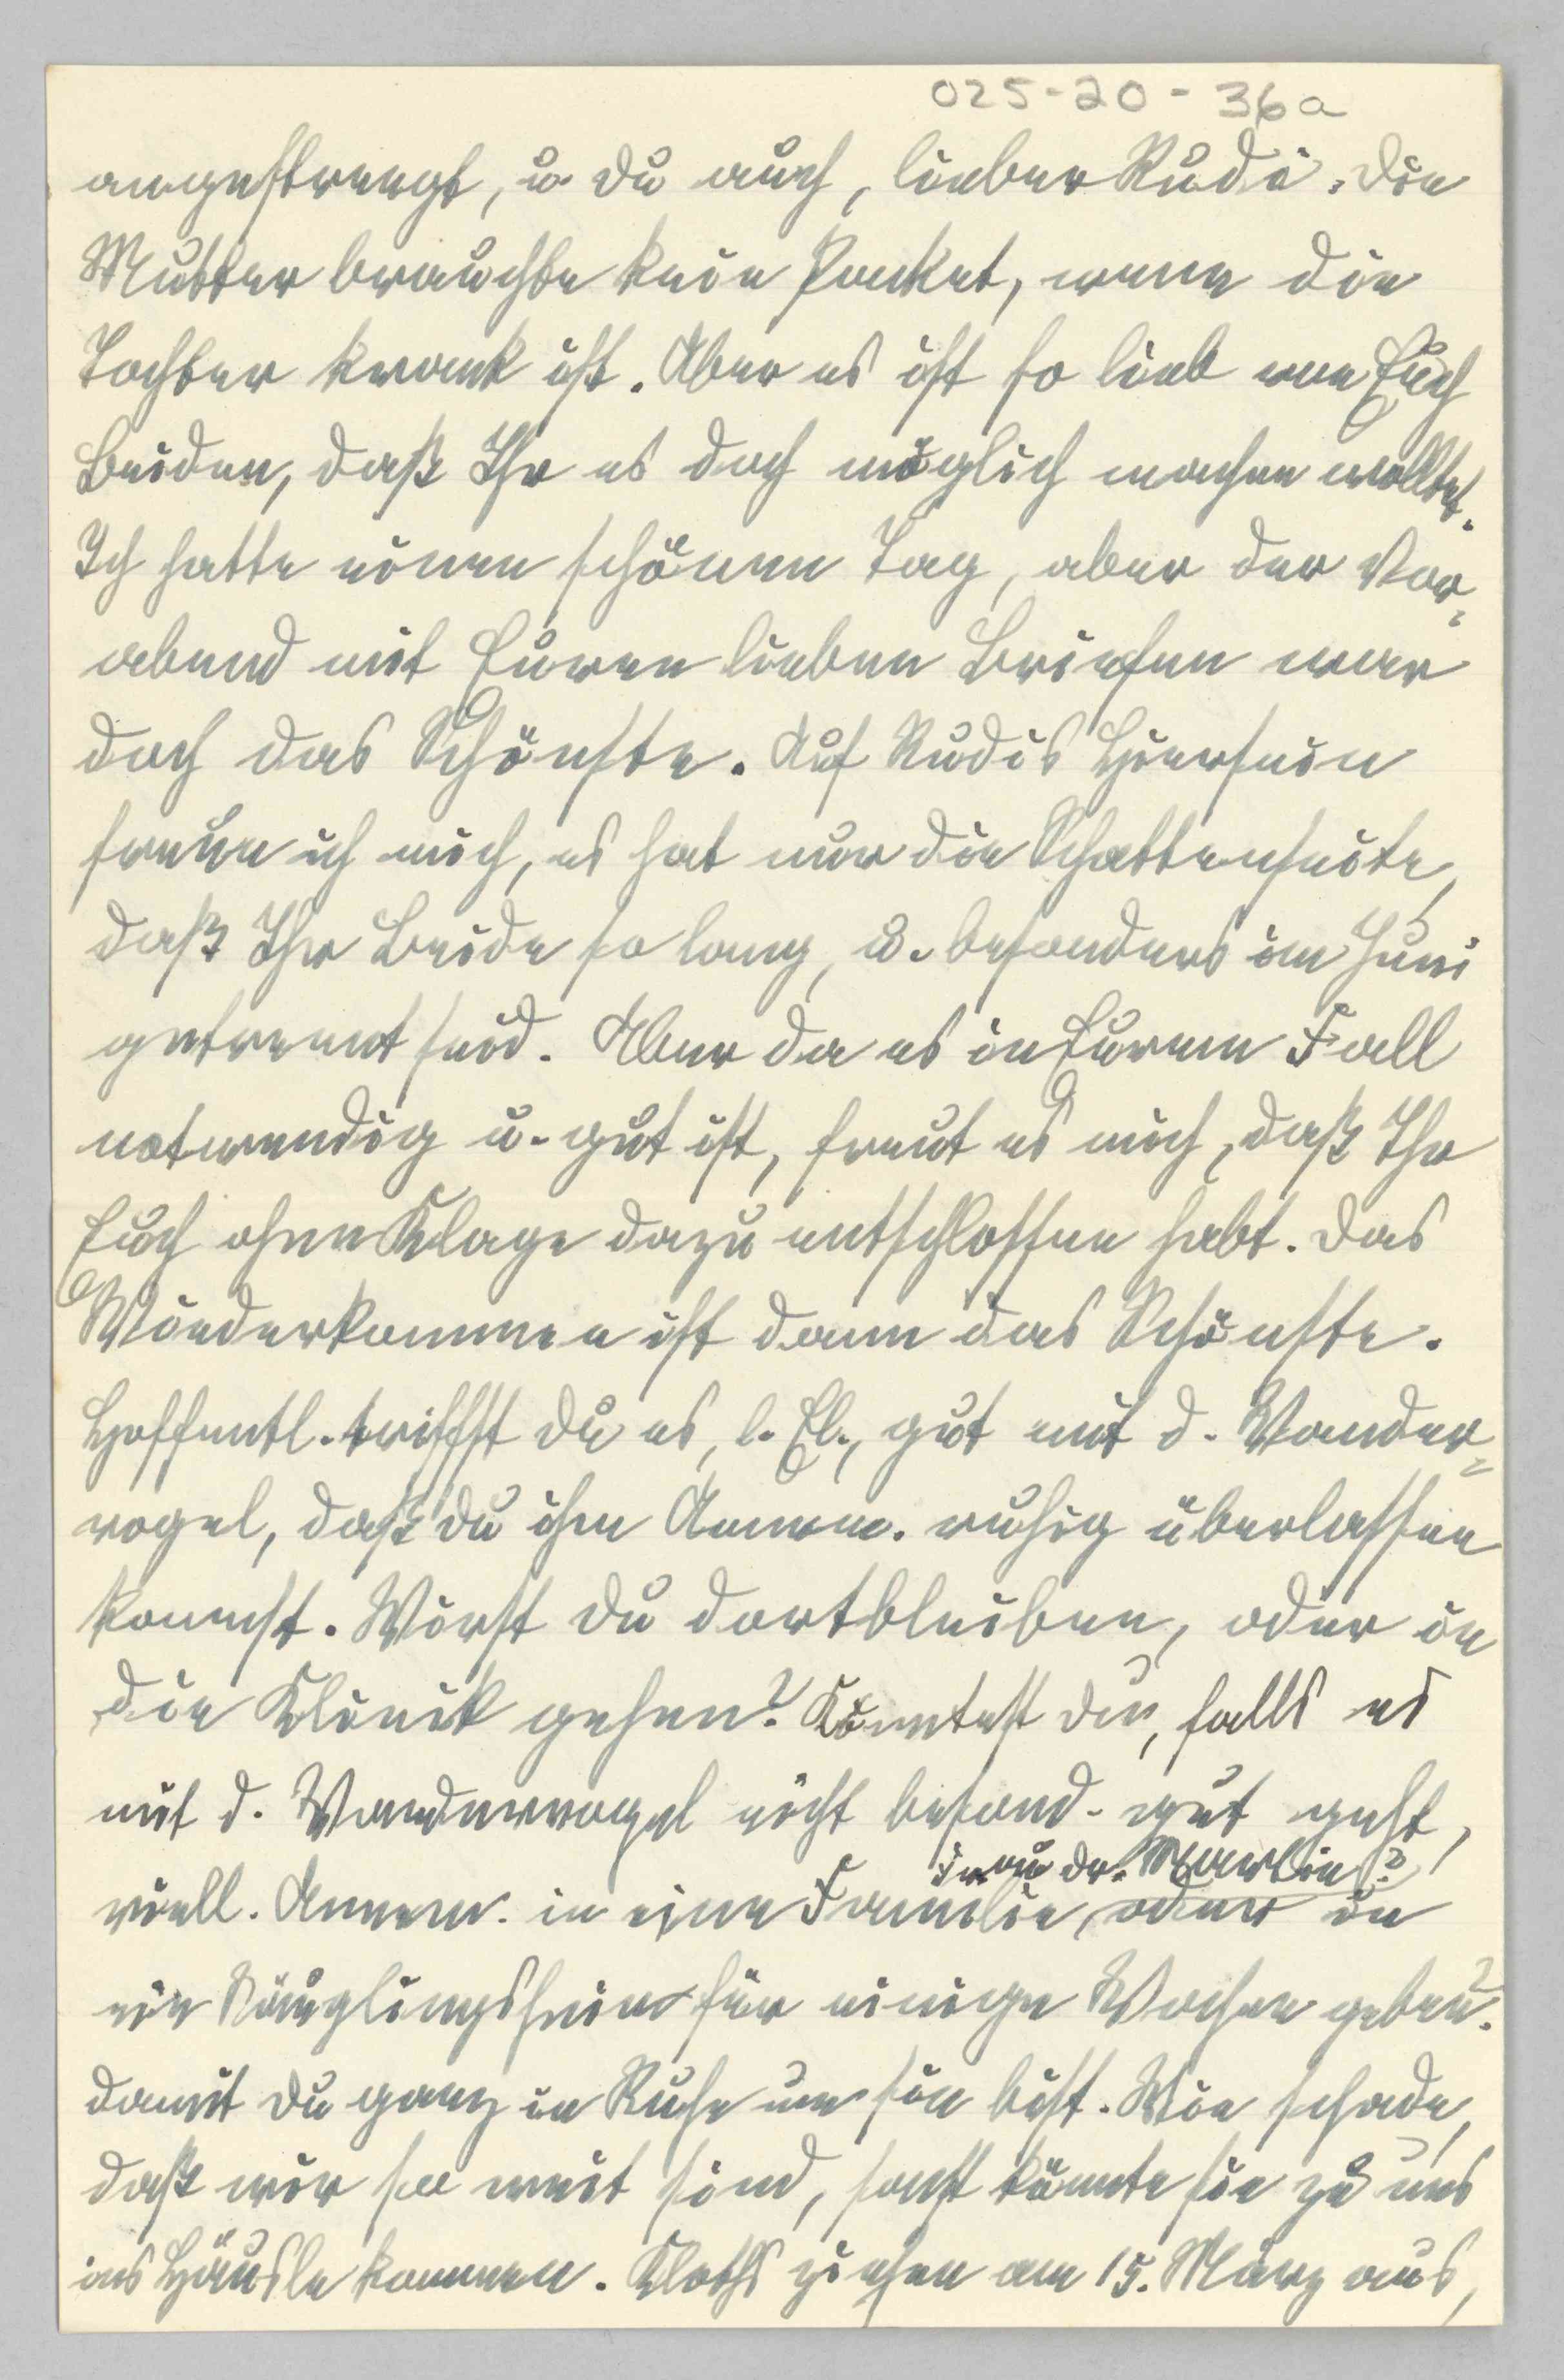 025-20-36a
angestrengt, u. Du auch, lieber Rudi. Die
Mutter brauchte kein Packet, wenn die
Tochter krank ist. Aber es ist so lieb von Euch
Beiden, daß Ihr es doch möglich machen wolltet.
Ich hatte einen schönen Tag, aber der Vor-
abend mit Euren lieben Briefen war
doch das Schönste. Auf Rudis Hiersein
freue ich mich, es hat nur die Schattenseite,
daß Ihr Beide so lang, u. besonders im Juni
getrennt seid. Aber da es in Eurem Fall
notwendig u. gut ist, freut es mich, daß Ihr
Euch ohne Klage dazu entschlossen habt. Das
Wiederkommen ist dann das Schönste.
Hoffentl. triffst Du es, l. El., gut mit d. Wander-
vogel, daß Du ihm Annem. ruhig überlassen
kannst. Wirst Du dortbleiben, oder in
die Klinik gehen? Könntest Du, falls es
mit d. Wandervogel nicht besond. gut geht,
Frau Dr. Martin?
viell. Annem. in eine Familie, oder in
ein Säuglingsheim für einige Wochen geben?
damit Du ganz in Ruhe um sie bist. Wie schade,
daß wir so weit sind, sonst könnte sie zu uns
ins Häusle kommen. Kloths ziehen am 15. März aus,